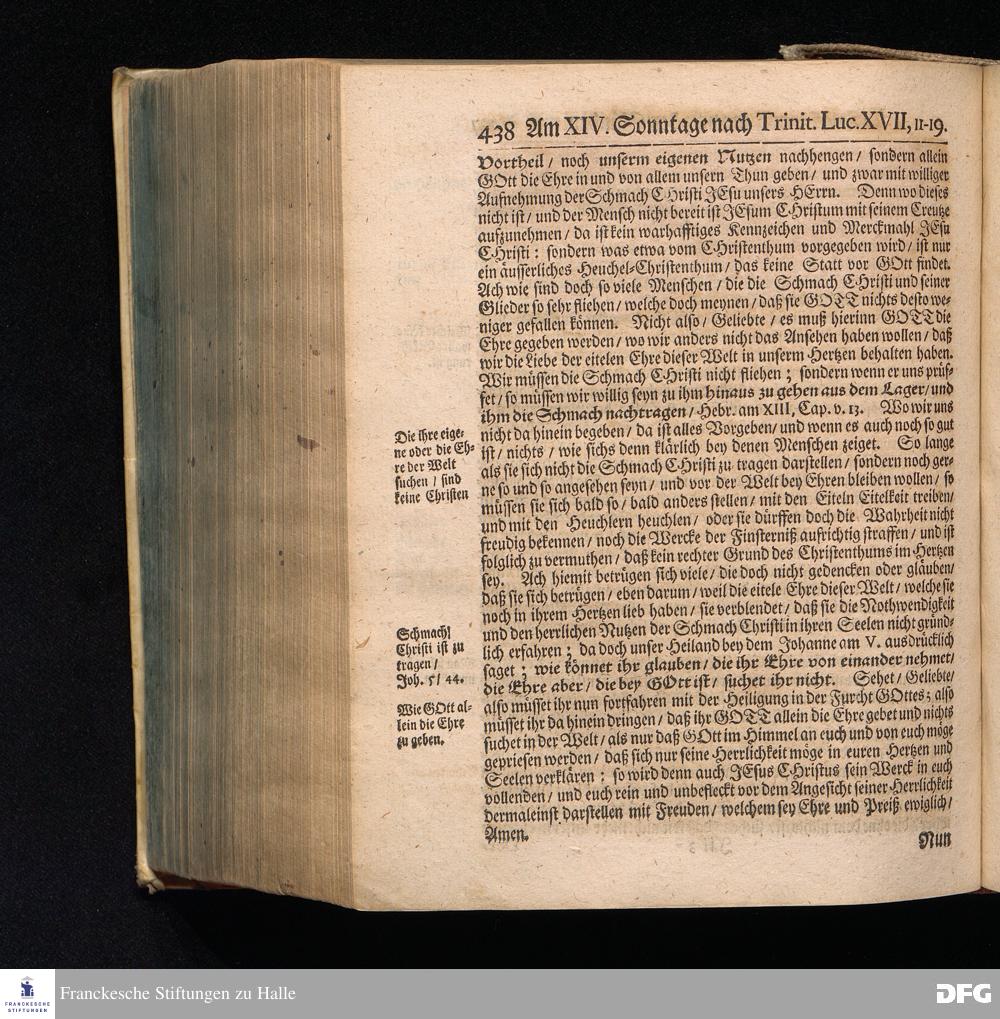 438 Am XIV. Sonntage nach Trinit. Luc. XVII, 11-19.
Vortheil / noch unserm eigenen Nutzen nachhengen / sondern allein
GOtt die Ehre in und von allem unsern Thun geben / und zwar mit williger
Aufnehmung der Schmach CHristi JEsu unsers HErrn. Denn wo dieses
nicht ist / und der Mensch nicht bereit ist JEsum CHristum mit seinem Creutze
aufzunehmen / da ist kein warhafftiges Kennzeichen und Merckmahl JEsu
CHristi : sondern was etwa vom CHristenthum vorgegeben wird / ist nur
ein äusserliches Heuchel-Christenthum / das keine Statt vor GOtt findet.
Ach wie sind doch so viele Menschen / die die Schmach CHristi und seiner
Glieder so sehr fliehen / welche doch meynen / daß sie GOTT nichts desto we-
niger gefallen können. Nicht also / Geliebte / es muß hierinn GOTT die
Ehre gegeben werden / wo wir anders nicht das Ansehen haben wollen / daß
wir die Liebe der eitelen Ehre dieser Welt in unserm Hertzen behalten haben.
Wir müssen die Schmach CHristi nicht fliehen ; sondern wenn er uns prüf-
fet / so müssen wir willig seyn zu ihm hinaus zu gehen aus dem Lager / und
ihm die Schmach nachtragen / Hebr. am XIII, Cap. v. 13. Wo wir uns
nicht da hinein begeben / da ist alles Vorgeben / und wenn es auch noch so gut
ist / nichts / wie sichs denn klärlich bey denen Menschen zeiget. So lange
als sie sich nicht die Schmach CHristi zu tragen darstellen / sondern noch ger-
ne so und so angesehen seyn / und vor der Welt bey Ehren bleiben wollen / so
müssen sie sich bald so / bald anders stellen / mit den Eiteln Eitelkeit treiben /
und mit den Heuchlern heuchlen / oder sie dürffen doch die Wahrheit nicht
freudig bekennen / noch die Wercke der Finsterniß aufrichtig straffen / und ist
folglich zu vermuthen / daß kein rechter Grund des Christenthums im Hertzen
sey. Ach hiemit betrügen sich viele / die doch nicht gedencken oder glauben /
daß sie sich betrügen / eben darum / weil die eitele Ehre dieser Welt / welche sie
noch in ihrem Hertzen lieb haben / sie verblendet / daß sie die Nothwendigkeit
und den herrlichen Nutzen der Schmach Christi in ihren Seelen nicht gründ-
lich erfahren ; da doch unser Heiland bey dem Johanne am V. ausdrücklich
saget ; wie könnet ihr glauben / die ihr Ehre von einander nehmet /
die Ehre aber / die bey GOtt ist / suchet ihr nicht. Sehet / Geliebte /
also müsset ihr nun fortfahren mit der Heiligung in der Furcht GOttes ; also
müsset ihr da hinein dringen / daß ihr GOTT allein die Ehre gebet und nichts
suchet in der Welt / als nur daß GOtt im Himmel an euch und von euch möge
gepriesen werden / daß sich nur seine Herrlichkeit möge in euren Hertzen und
Seelen verklären ; so wird denn auch JEsus CHristus sein Werck in euch
vollenden / und euch rein und unbefleckt vor dem Angesicht seiner Herrlichkeit
dermaleinst darstellen mit Freuden / welchem sey Ehre und Preiß ewiglich /
Amen.
Nun
Die ihre eige-
ne oder die Eh-
re der Welt
suchen / sind
keine Christen
Schmach
Christi ist zu
tragen /
Joh. 5 / 44.
Wie GOtt al-
lein die Ehre
zu geben.
FRANCKESCHE
STIFTUNGEN
Franckesche Stiftungen zu Halle
DFG